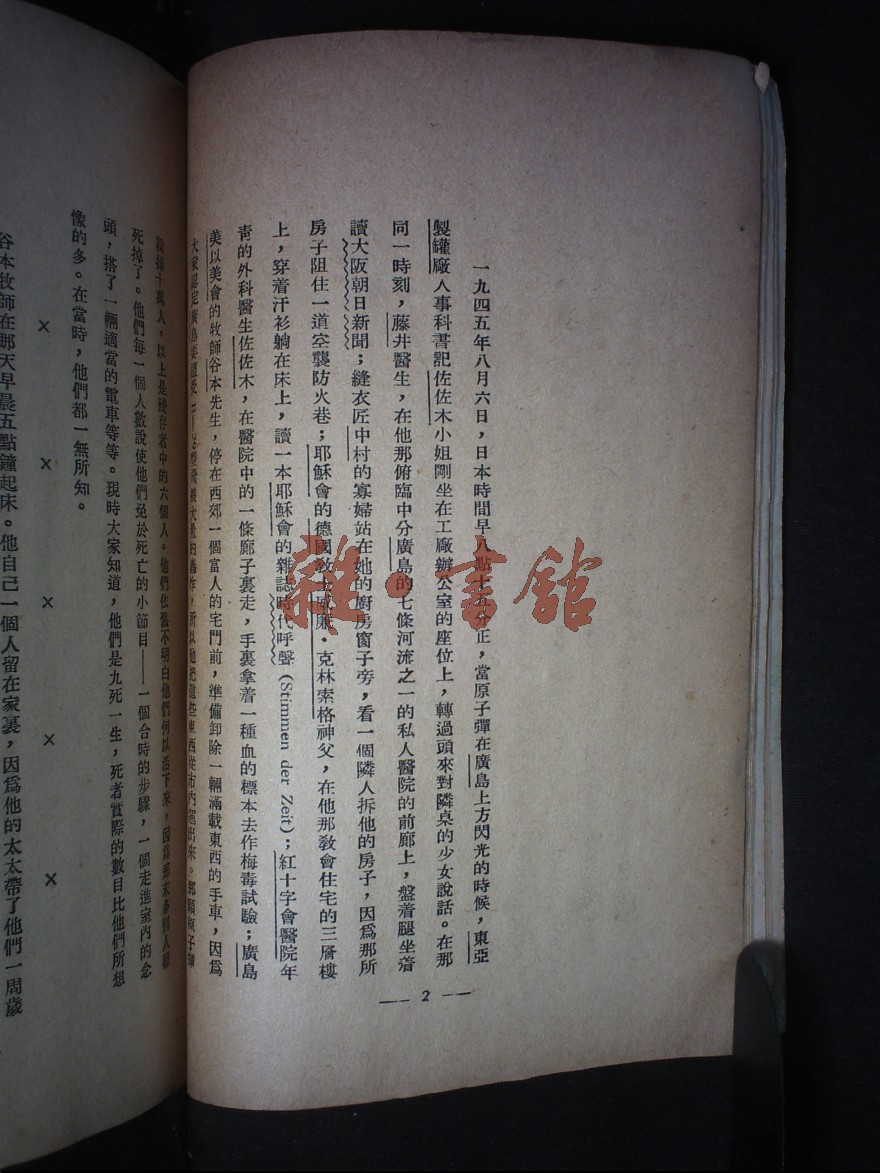 一九四五年八月六日，日本時間早八點十五分正，當原子彈在廣島上方閃光的時候，東亞
製罐廠人事科書記佐佐木小姐剛坐在工廠辦公室的座位上，轉過頭來對隣桌的少女說話。在那
同一時刻，藤井醫生，在他那俯臨中分廣島的七條河流之一的私人醫院的前廊上，盤着腿坐着
讀大阪朝日新聞；縫衣匠中村的寡婦站在她的廚房窗子旁，看一個隣人拆他的房子，因爲那所
房子阻住一道空襲防火巷；耶穌會的德國敎士威廉・克林索格神父，在他那敎會住宅的三層樓
上，穿着汗衫躺在床上，讀一本耶穌會的雜誌時代呼聲（Stimmen der Zeit）；紅十字會醫院年
靑的外科醫生佐佐木，在醫院中的一條廊子裏走，手裏拿着一種血的標本去作梅毒試驗；廣島
美以美會的牧師谷本先生，停在西郊一個富人的宅門前，準備卸除一輛滿載東西的手車，因爲
大家認定廣島要遭受 飛機大批的轟炸，所以他把這些東西從市內運出來。那顆原子彈
— 2 —
殺掉十萬人，以上是殘存者中的六個人。他們依舊不明白他們何以活下來，因爲那末多別人都
死掉了。他們每一個人數說使他們免於死亡的小節目——一個合時的步驟，一個走進室內的念
頭，搭了一輛適當的電車等等。現時大家知道，他們是九死一生，死者實際的數目比他們所想
像的多。在當時，他們都一無所知。
× × × × ×
谷本牧師在那天早晨五點鐘起床。他自己一個人留在家裏，因爲他的太太帶了他們一周歲
雜・書館